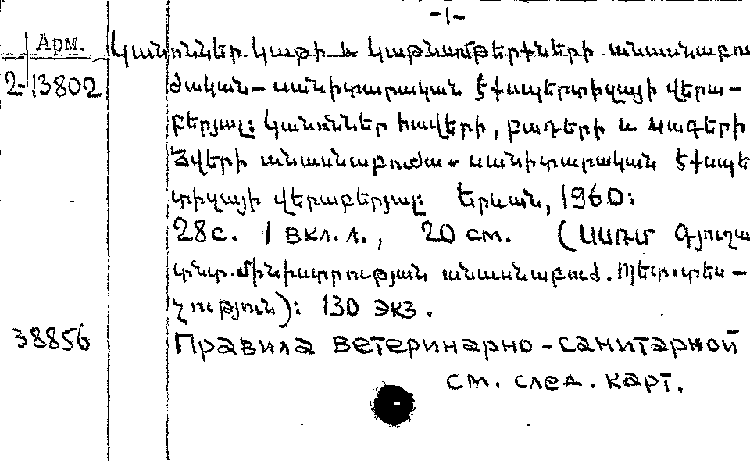 -1-
Арм. Կանոններ կաթի և կաթնամթերքների անասնաբու
2-13802 ժական-սանիտարական էքսպերտիզայի վերա-
բերյալ: Կանոններ հավերի, բադերի և սագերի
Ձվերի անասնաբուժա-սանիտարական էքսպե
տիզայի վերաբերյալ: Երևան, 1960:
28 с. 1 вкл. л., 20 см. (ՍՍՌՄ Գյուղա
տնտ. մինիստրության անասնաբուժ. պետ
չություն): 130 экз.
38856 Правила ветеринарно-санитарной
см. след. карт.